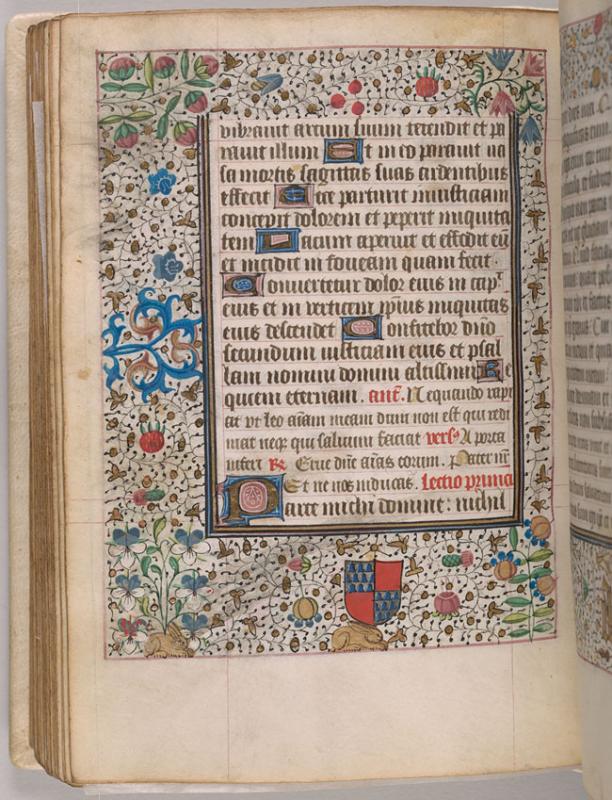 vibravit arcum suum tetendit et pa
ravit illum Et in eo paravit va
sa mortis sagittas suas ardentibus
effecit Ecce parturit iniusticiam
concepit dolorem et peperit iniquita
tem Lacum aperuit et effodit eū
et incidit in foveam quam fecit.
Convertetur dolor eius in cap
eius et in verticem ipsius iniquitas
eius descendet Confitebor dño
secundum iusticiam eius et psal
lam nomini domini altissimi Re
quiem eternam. ant. Nequando rapi
at ut leo aīam meam dum non est qui redi
mat neqꝫ qui saluum faciat vers A porta
inferi ℟ Erue dñe aīas eorum. Pater nr̄
Et ne nos inducas. Lectio prima
Parce michi domine: nichil